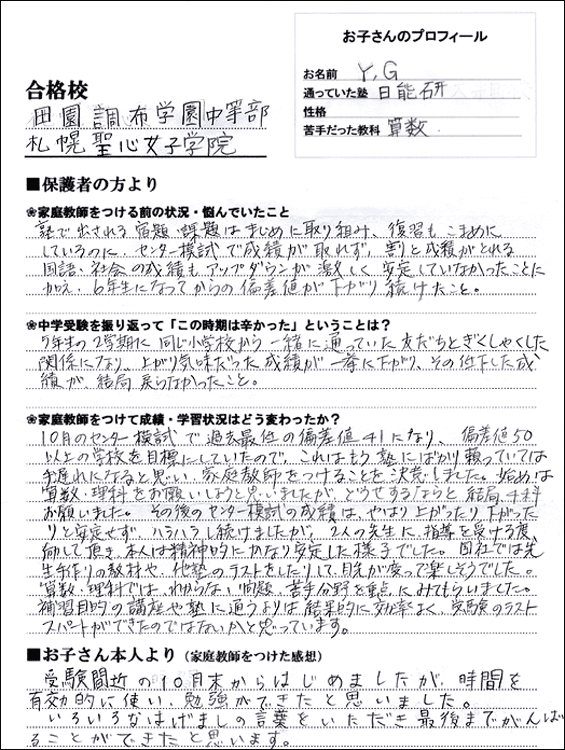 お子さんのプロフィール
お名前 Y.G
通っていた塾 日能研
性格
苦手だった教科 算数.
合格校
田園調布学園中等部
札幌聖心女子学院
■保護者の方より
❀家庭教師をつける前の状況・悩んでいたこと
塾で出される宿題・課題はまじめに取り組み、復習もこまめに
しているのに、センター模試で成績が取れず、割と成績がとれる
国語・社会の成績もアップダウンが激しく安定していなかったことに
加え、6年生になってからの偏差値が下がり続けたこと。
❀中学受験を振り返って「この時期は辛かった」ということは?
5年生の2学期に同じ小学校から一緒に通っていた友だちとぎくしゃくした
関係になり、上がり気味だった成績が一挙に下がり、その低下した成
績が、結局戻らなかったこと。
❀家庭教師をつけて成績・学習状況はどう変わったか?
10月のセンター模試で過去最低の偏差値41になり、偏差値50
以上の学校を目標にしていたので、これはもう塾にばかり頼っていては
手遅れになると思い、家庭教師をつけることを決心しました。始めは
算数・理科をお願いしようと思いましたが、どうせするならと結局4科
お願いしました。その後のセンター模試の成績は、やはり上がったり下がった
りと安定せず、ハラハラし続けましたが、2人の先生に、指導を受ける度、
励して頂き、本人は精神的にかなり安定した様子でした。国社では先
生手作りの教材や、他塾のテストをしたりして、目先が変って楽しそうでした。
算数・理科では、わからない問題、苦手分野を重点にみてもらいました。
補習目的の講座や塾に通うよりは結果的に効率よく、受験のラスト
スパートができたのではないかと思っています。
■お子さん本人より(家庭教師をつけた感想)
受験間近の10月末からはじめましたが、時間を
有効的に使い、勉強ができたと思いました。
いろいろなはげましの言葉をいただき最後までがんば
ることができたと思います。